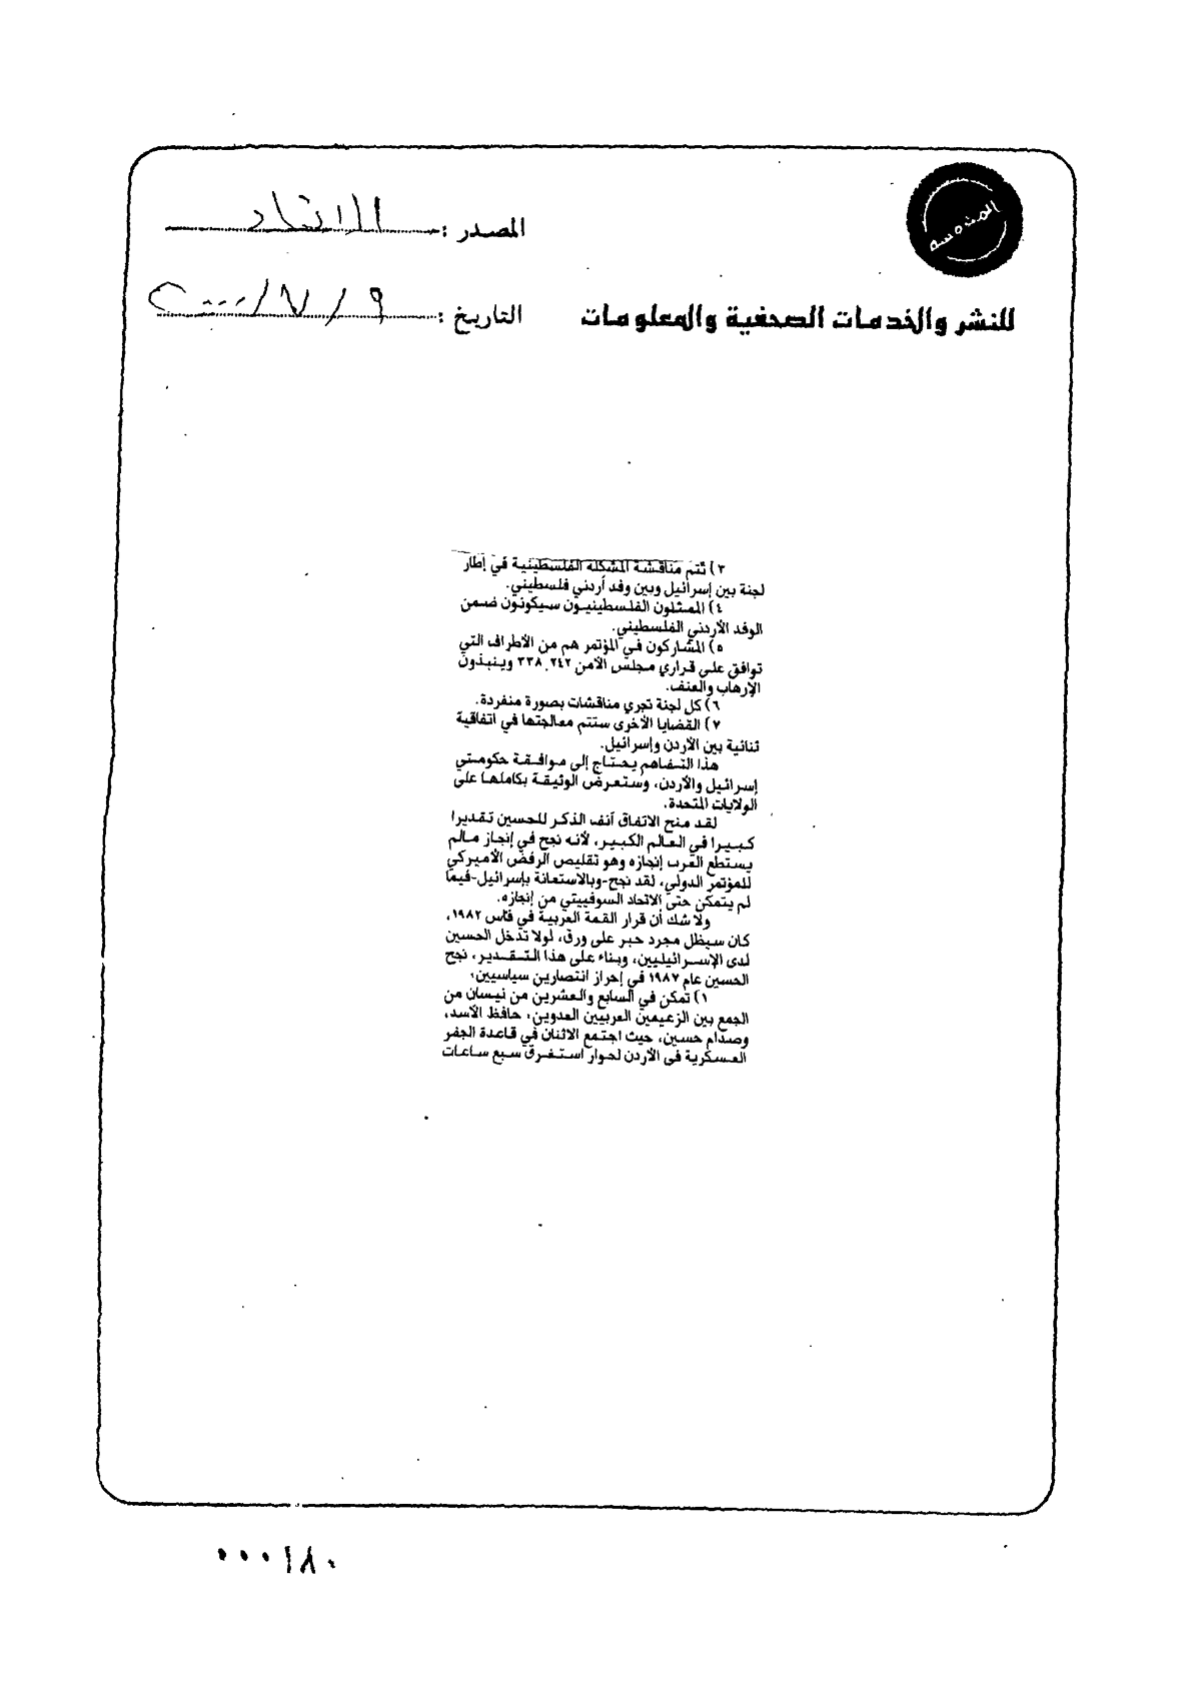 المصدر : الاتحاد
للنشر والخدمات الصحفية والمعلومات
التاريخ : ٩ / ٧ / ٢٠٠٠
٣) تتم مناقشة المشكلة الفلسطينية في إطار
لجنة بين إسرائيل وبين وفد أردني فلسطيني.
٤) الممثلون الفلسطينيون سيكونون ضمن
الوفد الأردني الفلسطيني.
٥) المشاركون في المؤتمر هم من الأطراف التي
توافق على قراري مجلس الأمن ٢٤٢، ٣٣٨ وينبذون
الإرهاب والعنف.
٦) كل لجنة تجري مناقشات بصورة منفردة.
٧) القضايا الأخرى ستتم معالجتها في اتفاقية
ثنائية بين الأردن وإسرائيل.
هذا التفاهم يحتاج إلى موافقة حكومتي
إسرائيل والأردن، وستعرض الوثيقة بكاملها على
الولايات المتحدة.
لقد منح الاتفاق آنف الذكر للحسين تقديرا
كبيرا في العالم الكبير، لأنه نجح في إنجاز مالم
يستطع العرب إنجازه وهو تقليص الرفض الأميركي
للمؤتمر الدولي، لقد نجح-وبالاستعانة بإسرائيل-فيما
لم يتمكن حتى الاتحاد السوفييتي من إنجازه.
ولا شك أن قرار القمة العربية في فاس ١٩٨٢،
كان سيظل مجرد حبر على ورق، لولا تدخل الحسين
لدى الإسرائيليين، وبناء على هذا التقدير، نجح
الحسين عام ١٩٨٧ في إحراز انتصارين سياسيين؛
١) تمكن في السابع والعشرين من نيسان من
الجمع بين الزعيمين العربيين العدوين، حافظ الأسد،
وصدام حسين، حيث اجتمع الاثنان في قاعدة الجفر
العسكرية في الأردن لحوار استغرق سبع ساعات
٠٠٠١٨٠